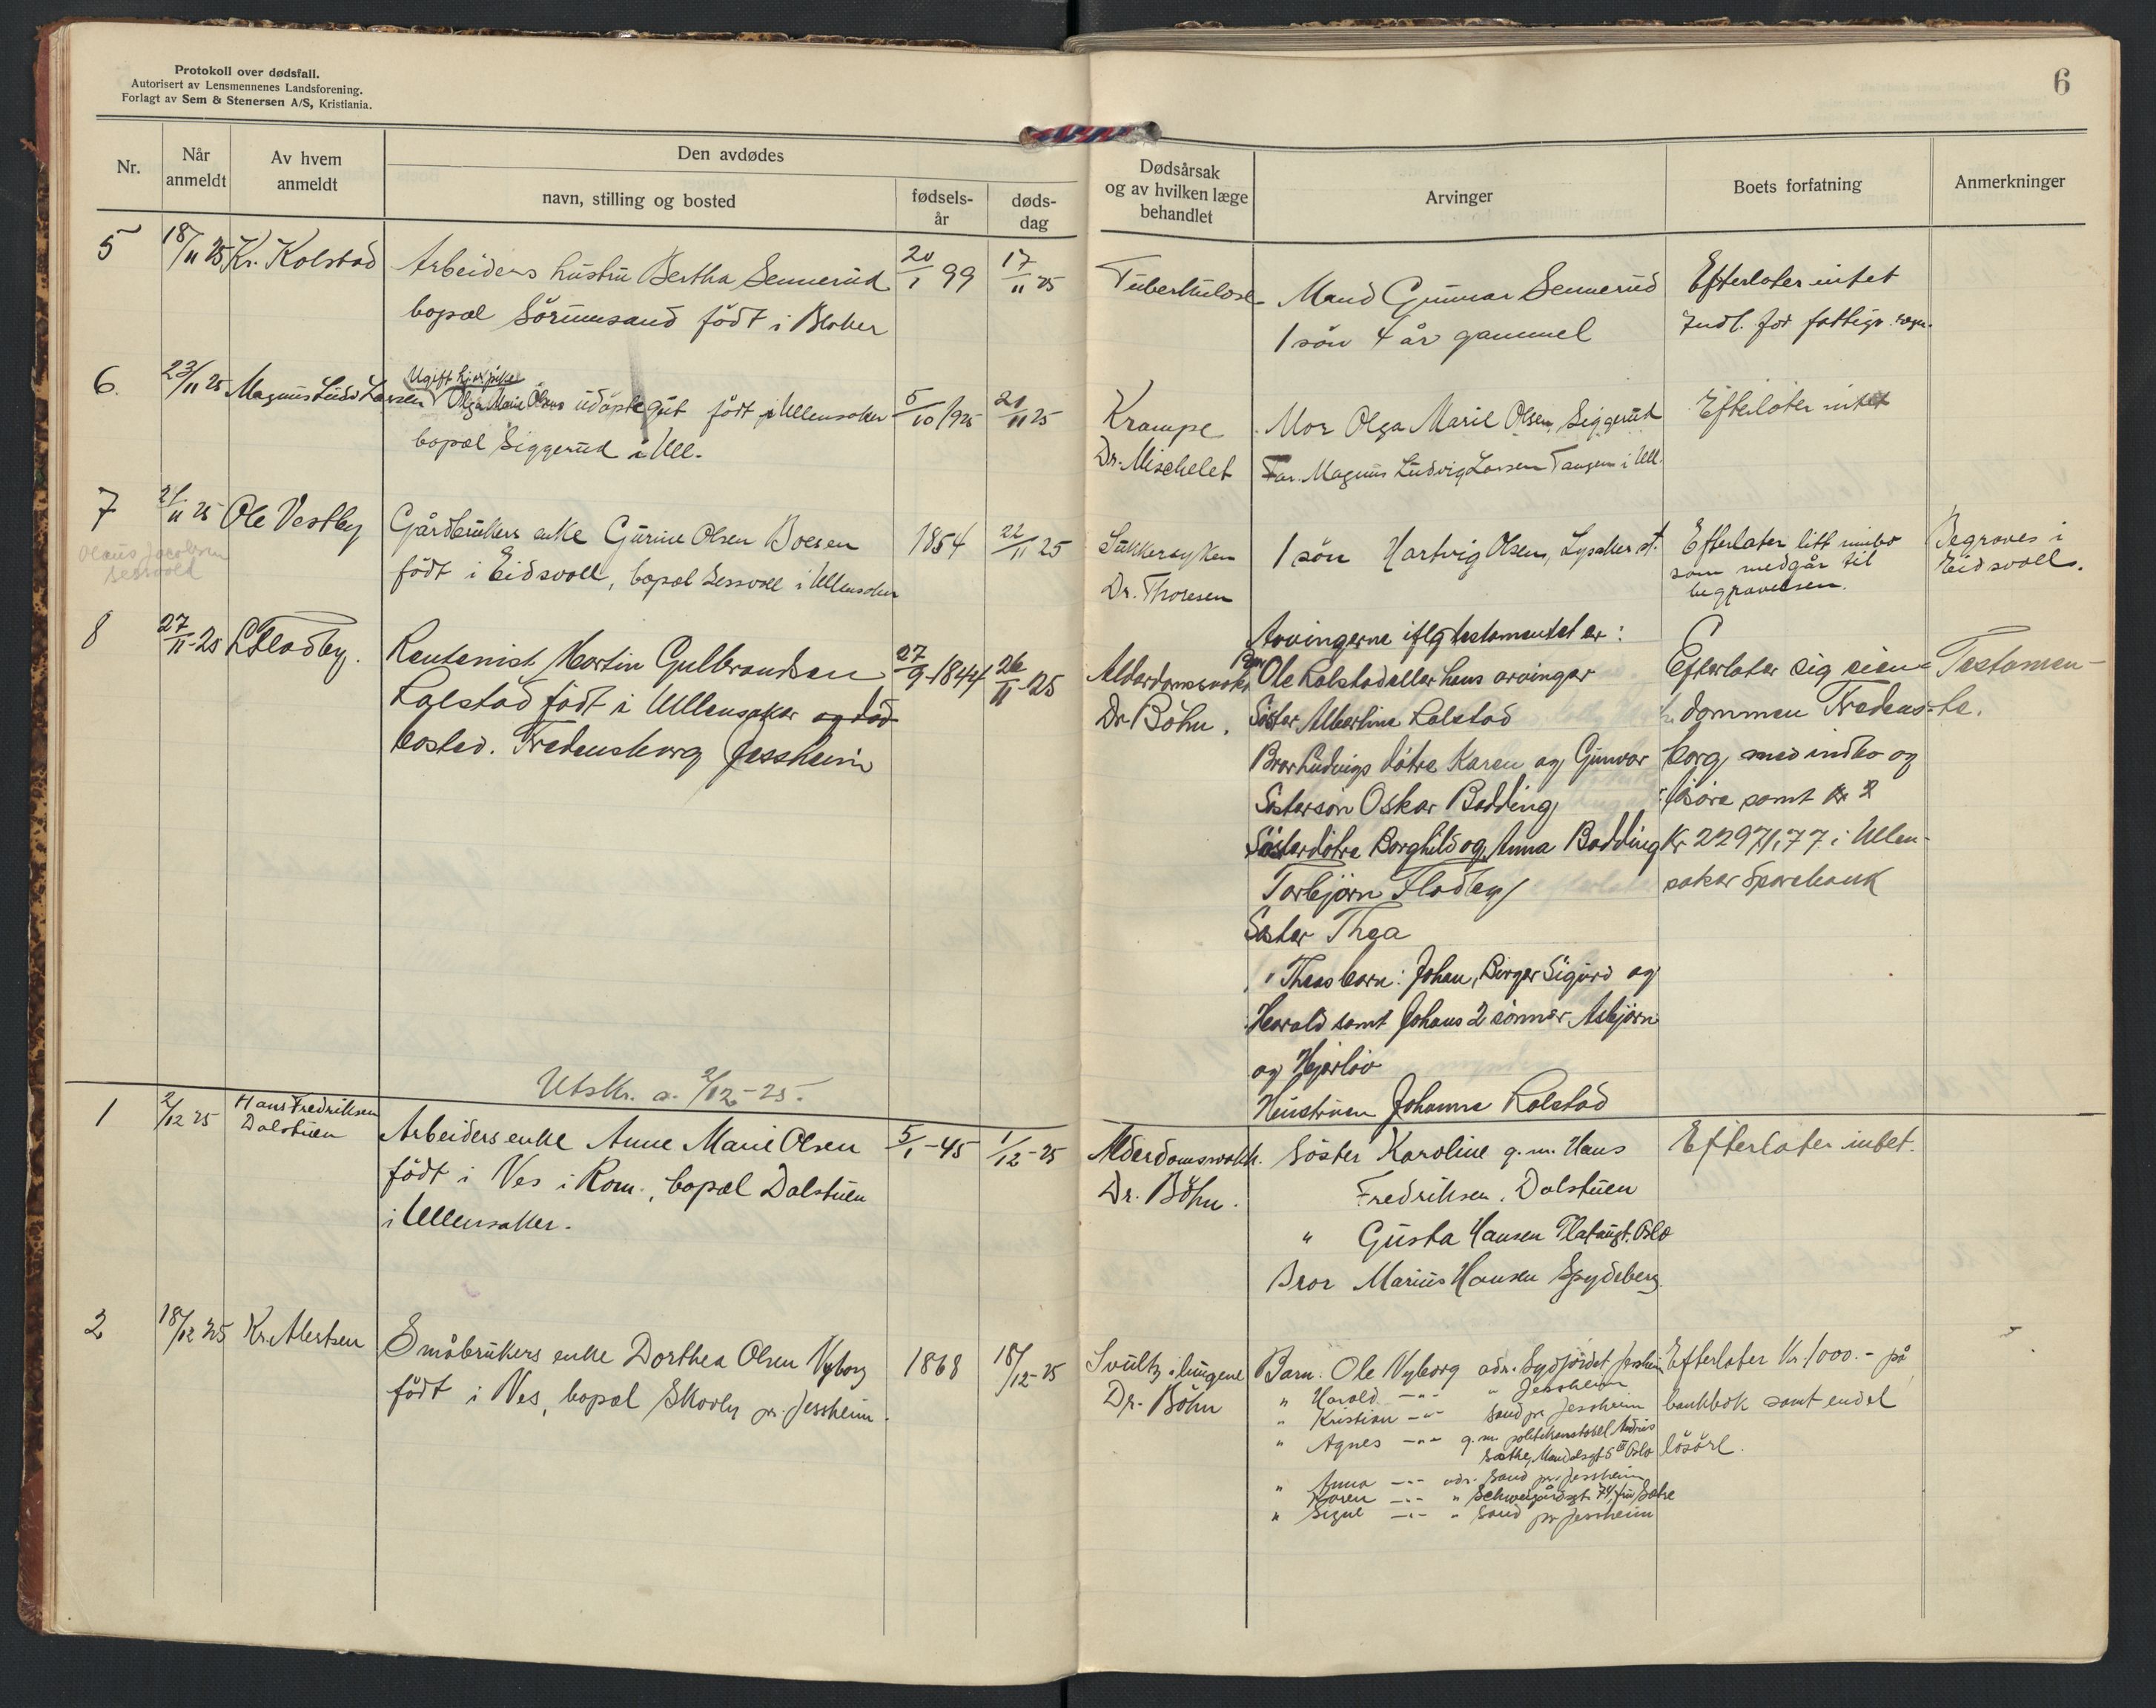 Protokoll over dødsfall.
Autorisert av Lensmennenes Landsforening.
Forlagt av Sem & Stenersen A/S, Kristiania.
6
Nr.
Når anmeldt
Av hvem anmeldt
Den avdødes
navn, stilling og bosted
fødsels-år
døds-dag
Dødsårsak og av hvilken læge behandlet
Arvinger
Boets forfatning
Anmerkninger
5
18/11 25
Kr. Kolstad
Arbeiders hustru Bertha Sennerud
bopæl Sörumsand født i Blaker
20/1 99
17/11 25
Tuberkulose
Mand Gunnar Sennerud
1 sön 4 år gammel
Efterlater intet
Indl. for fattigv.
6.
23/11 25
Magnus Ludv Larsen
Ugift
Olga Marie Olsens udöpte gut født i Ullensaker
bopæl Siggerud i Ull.
5/10 1925
21/11 25
Krampe
Dr. Mischelet
Mor Olga Marie Olsen, Siggerud
Far. Magnus Ludvig Larsen Tangen i Ull.
Efterlater intet
7
21/11 25
Ole Vestby
Olaus Jacobsen
Sessvold
Gårdbrukers enke Gurine Olsen Boesen
födt i Eidsvoll, bopæl Sessvoll i Ullensaker
1854
22/11 25
Sukkersyken
Dr. Thoresen
1 sön Hartvig Olsen, Lysaker st.
Efterlater litt innbo
som medgår til
begravelsen.
Begraves i
Eidsvoll.
8
27/11-25
L Fladby.
Rentenist Martin Gulbrandsen
Lalstad födt i Ullensaker og död
bosted. Fredensborg Jessheim
27/9-1844
26/11-25
Alderdomssvakh
Dr Böhn.
Arvingerne iflg testamentet er:
Bror Ole Lalstad eller hans arvinger
Söster Albertine Lalstad
Bror Ludvigs dötre Karen og Gunvor
Sösterson Oskar Bedding
Sösterdötre Borghild og Anna Bedding
Torbjörn Flodby
Söster Thea
" Theas barn: Johan, Birger Sigurd og
Harald samt Johans 2 sönner Asbjörn
og Hjørlöv
Heustruen Johanne Lalstad
Efterlater sig eien-
dommen Fredens-
borg med indbo og
lösöre samt kr 2
Kr 22971,77 i Ullen-
saker Sparebank
Testamen-
te.
Utskr. a. 2/12-25.
1
2/12 25
Hans Fredriksen
Dalstuen
Arbeiders enke Anne Marie Olsen
födt i Nes i Rom., bopæl Dalstuen
i Ullensaker.
5/1-45
1/12-25
Alderdomssvakh.
Dr. Böhn.
Söster Karoline g. m. Hans
Fredriksen, Dalstuen
" Gusta Hansen Platougt. Oslo
Bror Marius Hansen Spydeberg
Efterlater intet.
2
18/12 25
Kr. Alertsen
Småbrukers enke Dorthea Olsen Nyborg
födt i Nes, bopæl Skovly pr. Jessheim.
1868
18/12-25
Svulst i lungene
Dr. Böhn
Barn. Ole Nyborg adr. Sydjordet Jessheim
" Harald -"- " Jessheim
" Kristian -"- Sand pr Jessheim
" Agnes -"- g.m. politikonstabel
Sæthe, Mandalsgt 5 III Oslo
" Anna -"- adr. Sand pr. Jessheim
Karen -"- " Schweigårdsgt. 74, fru Sætre
" Signe -"- " Sand pr Jessheim
Efterlater kr. 1000.- på
bankbok samt endel
lösöre.